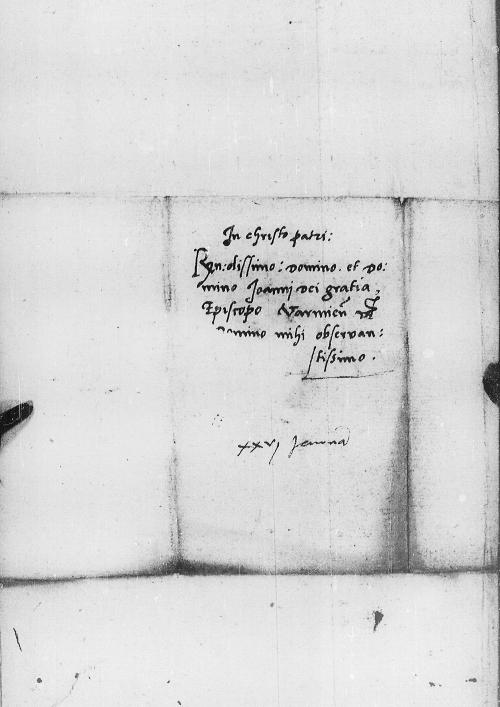 In christo patri:
Ren:dissimo: domino. et do:
mino Joanni dei gratia,
Episcopo Varmien̄
Domino mihi observan:
tissimo.
xxvj